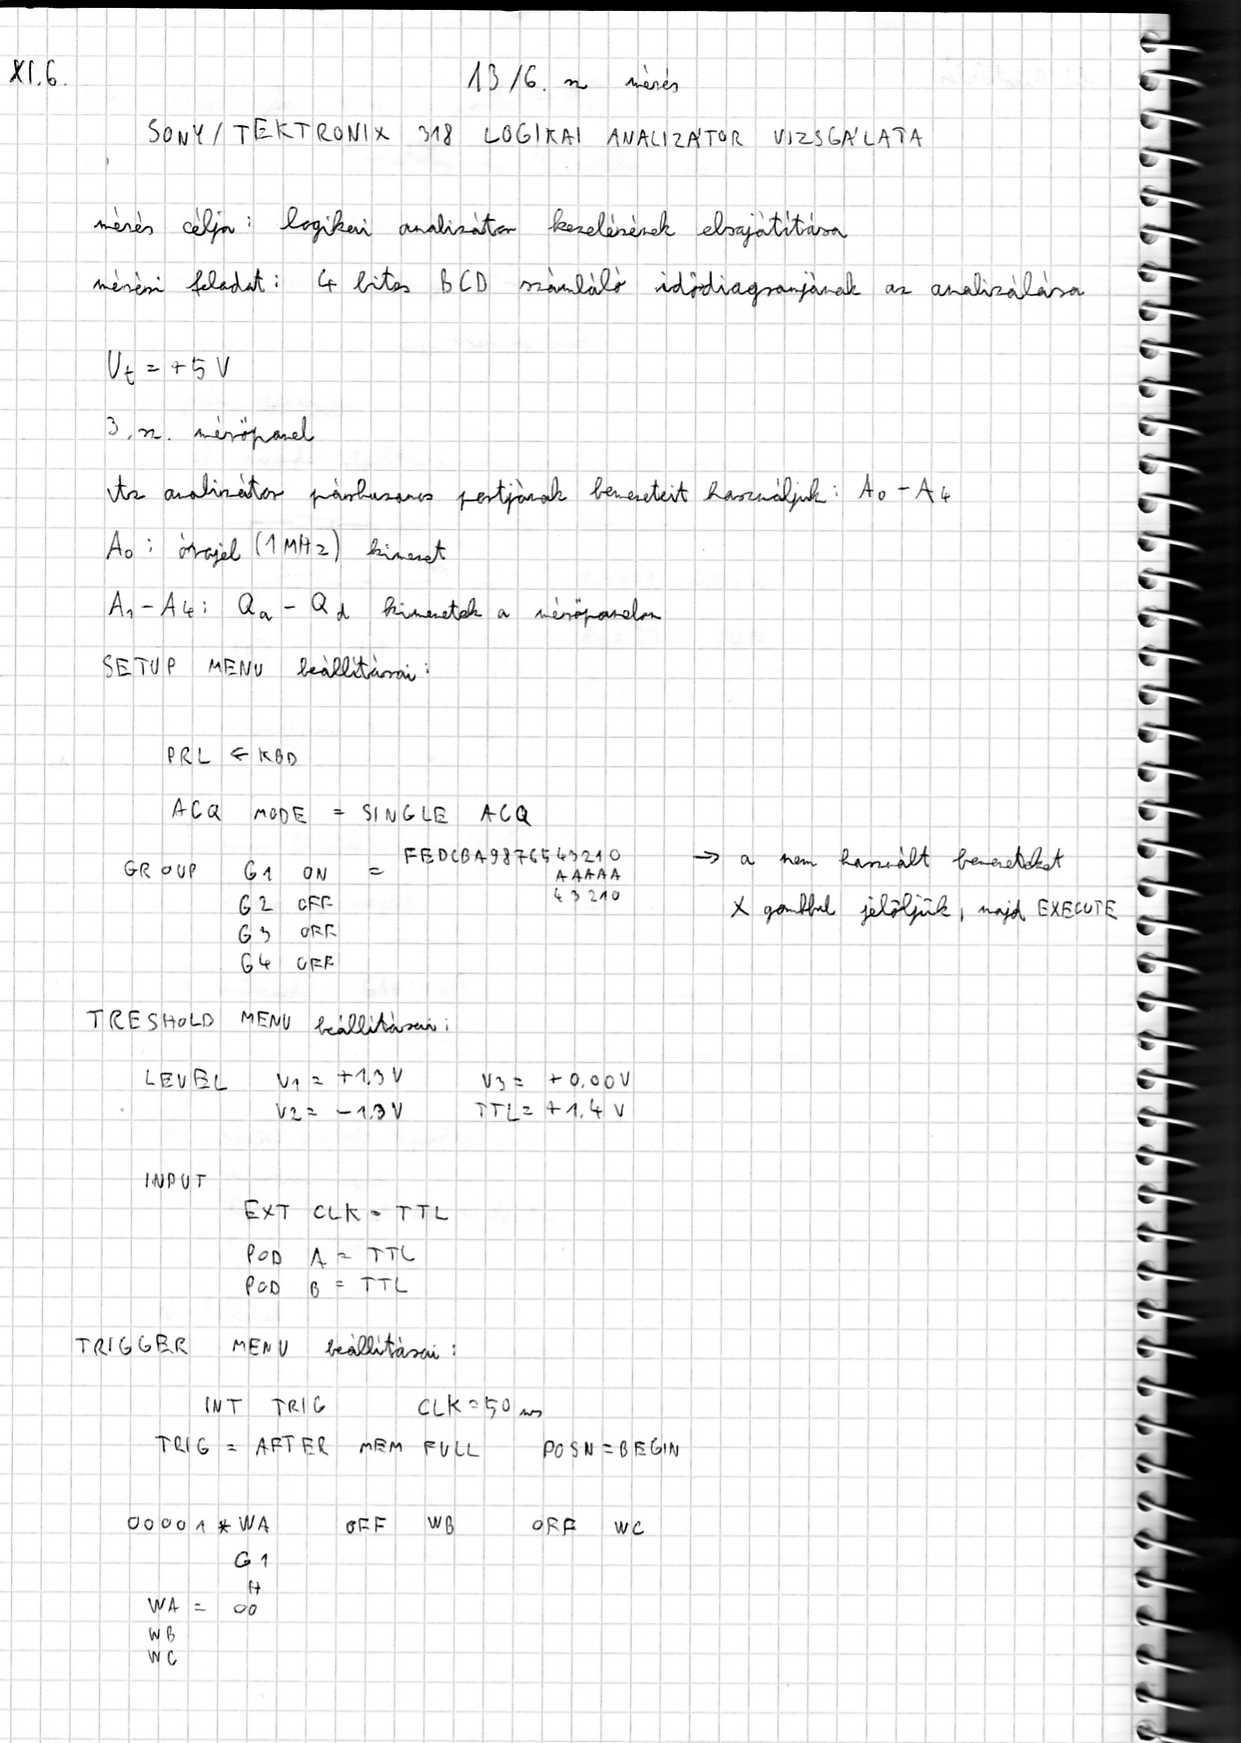 XI.6.
13/6. sz mérés
SONY/TEKTRONIX 318 LOGIKAI ANALIZÁTOR VIZSGÁLATA
mérés célja: logikai analizátor kezelésének elsajátítása
mérési feladat: 4 bites BCD számláló idődiagramjának az analizálása
Ut = +5 V
3. sz. mérőpanel
Az analizátor párhuzamos portjának bemeneteit használjuk: A0 - A4
A0: órajel (1 MHz) kimenet
A1 - A4: Qa - Qd kimenetek a mérőpanelon
SETUP MENU beállításai:
PRL ← KBD
ACQ MODE = SINGLE ACQ
FEDCBA9876543210 → a nem használt bemeneteket
GROUP G1 ON = AAAAA
G2 OFF 43210 X gombbal jelöljük, majd EXECUTE
G3 OFF
G4 OFF
TRESHOLD MENU beállításai:
LEVEL V1 = +1.3 V V3 = +0.00 V
V2 = -1.3 V TTL = +1.4 V
INPUT
EXT CLK = TTL
POD A = TTL
POD B = TTL
TRIGGER MENU beállításai:
INT TRIG CLK = 50 ns
TRIG = AFTER MEM FULL POSN = BEGIN
00001 * WA OFF WB OFF WC
G1
H
WA = 00
WB
WC